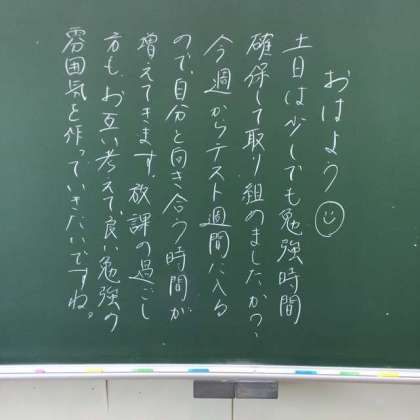 おはよう
土日は少しでも勉強時間
確保して取り組めましたか?
今週からテスト週間に入る
ので、自分と向き合う時間が
増えてきます。放課の過ごし
方も、お互い考えて、良い勉強の
雰囲気を作っていきたいですね。